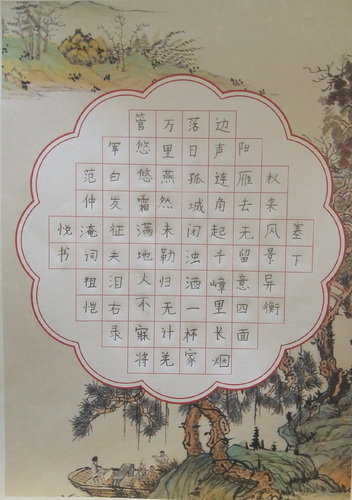 塞下
秋来风景异衡
阳雁去无留意四面
边声连角起千嶂里长烟
落日孤城闭浊酒一杯家
万里燕然未勒归无计羌
管悠悠霜满地人不寐将
军白发征夫泪右录
范仲淹词祖恺
悦书